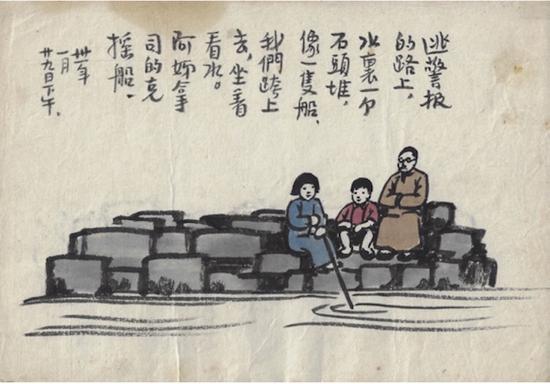 逃警报
的路上，
水裏一个
石頭堆，
像一隻船，
我們跨上
去，坐着
看水。
阿姊拿
司的克
摇船、
卅一年
一月
廿九日下午。